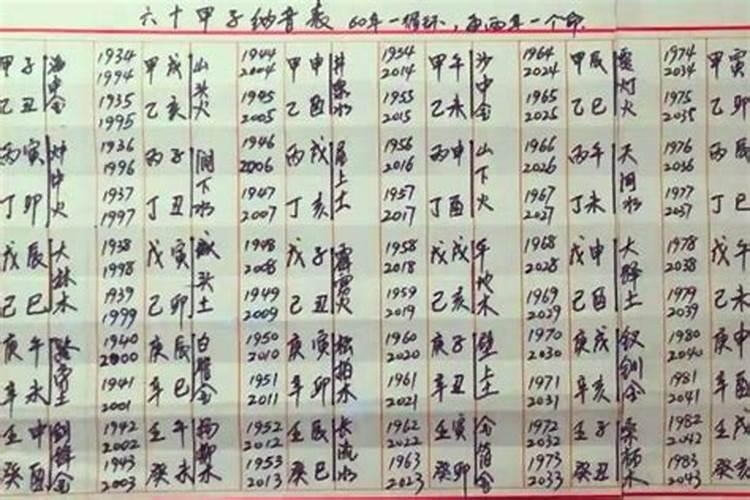 六十甲子纳音表 60年一循环，每两年一个命
甲子 海中金 1934 1994 甲戌 山头火 1944 2004 甲申 井泉水 1954 2014 甲午 沙中金 1964 2024 甲辰 灯火 1974 2034 甲寅
乙丑 1935 1995 乙亥 1945 2005 乙酉 1955 2015 乙未 1965 2025 乙巳 1975 2035 乙卯
丙寅 炉中火 1936 1996 丙子 涧下水 1946 2006 丙戌 屋上土 1956 2016 丙申 山下火 1966 2026 丙午 天河水 1976 2036 丙辰
丁卯 1937 1997 丁丑 1947 2007 丁亥 1957 2017 丁酉 1967 2027 丁未 1977 2037 丁巳
戊辰 大林木 1938 1998 戊寅 城头土 1948 2008 戊子 霹雳火 1958 2018 戊戌 平地木 1968 2028 戊申 大驿土 1978 2038 戊午
己巳 1939 1999 己卯 1949 2009 己丑 1959 2019 己亥 1969 2029 己酉 1979 2039 己未
庚午 路旁土 1940 2000 庚辰 白腊金 1950 2010 庚寅 松柏木 1960 2020 庚子 壁上土 1970 2030 庚戌 钗钏金 1980 2040 庚申
辛未 1941 2001 辛巳 1951 2011 辛卯 1961 2021 辛丑 1971 2031 辛亥 1981 2041 辛酉
壬申 剑锋金 1942 2002 壬午 杨柳木 1952 2012 壬辰 长流水 1962 2022 壬寅 金箔金 1972 2032 壬子 桑柘木 1982 2042 壬戌
癸酉 1943 2003 癸未 1953 2013 癸巳 1963 2023 癸卯 1973 2033 癸丑 1983 2043 癸亥